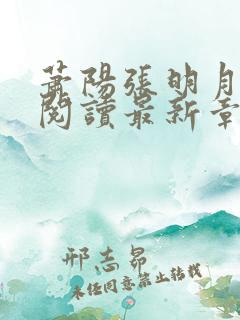 萧陽張明月
閱讀最新章
邢志昂
未经同意禁止转载